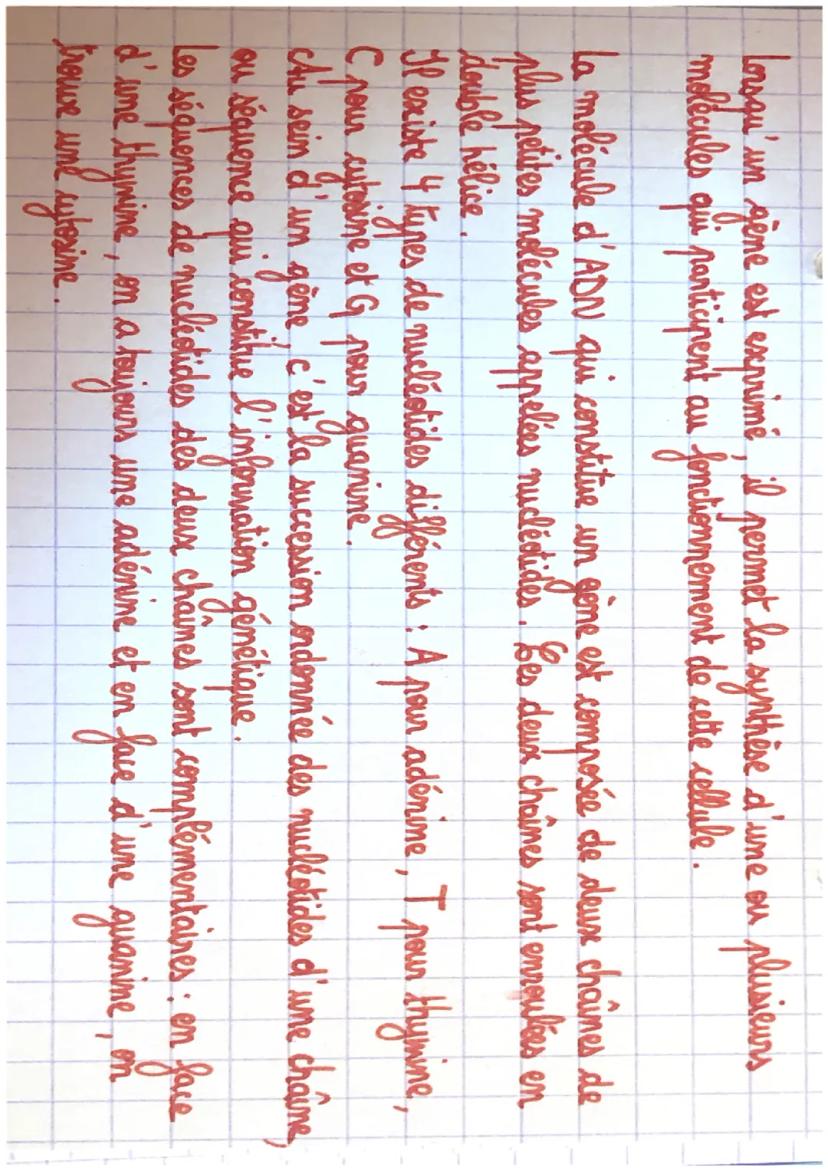 Lorsqu'un gène est exprimé, il permet la synthèse d'une ou plusieurs
molécules qui participent au fonctionnement de cette cellule.
La molécule d'ADN qui constitue un gène est composée de deux chaînes de
plus petites molécules appelées nucléotides. Ces deux chaînes sont enroulées en
double hélice.
Il existe 4 types de nucléotides différents : A pour adénine, T pour thymine,
C pour cytosine et G pour guanine.
Au sein d'un gène c'est la succession ordonnée des nucléotides d'une chaîne,
ou séquence qui constitue l'information génétique.
Les séquences de nucléotides des deux chaînes sont complémentaires : en face
d'une thymine, on a toujours une adénine et en face d'une guanine, on
trouve une cytosine.